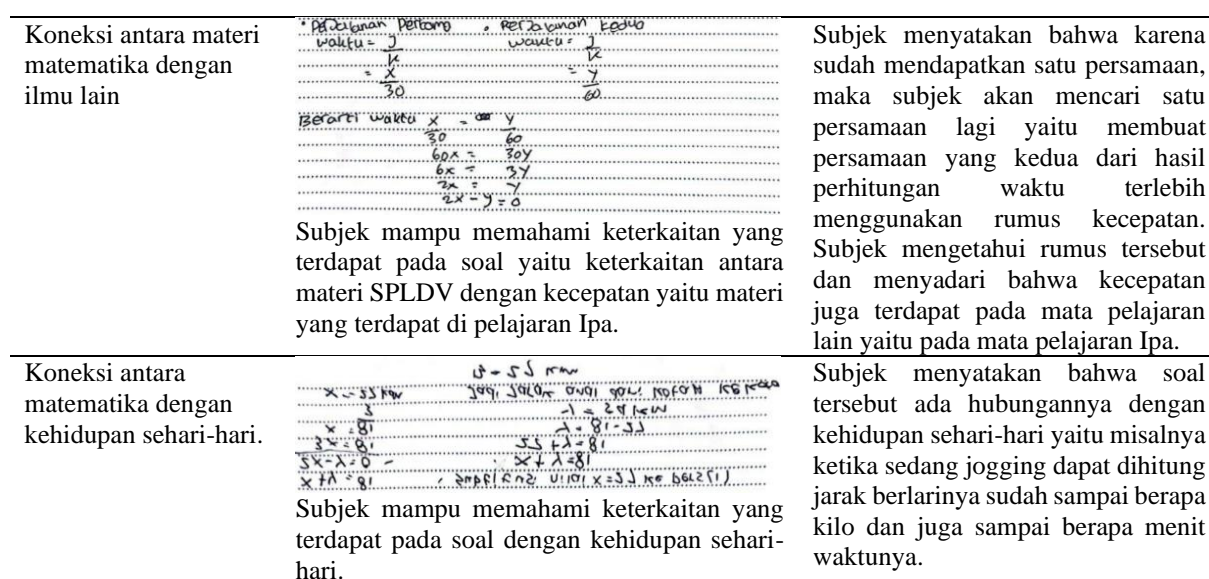 Koneksi antara materi
matematika dengan
ilmu lain
• Perjalanan Pertama • Perjalanan kedua
waktu = J waktu = J
K K
= x = y
30 60
Berarti waktu x = y
30 60
60x = 30y
6x = 3y
2x = y
2x - y = 0
Subjek mampu memahami keterkaitan yang
terdapat pada soal yaitu keterkaitan antara
materi SPLDV dengan kecepatan yaitu materi
yang terdapat di pelajaran Ipa.
Subjek menyatakan bahwa karena
sudah mendapatkan satu persamaan,
maka subjek akan mencari satu
persamaan lagi yaitu membuat
persamaan yang kedua dari hasil
perhitungan waktu terlebih
menggunakan rumus kecepatan.
Subjek mengetahui rumus tersebut
dan menyadari bahwa kecepatan
juga terdapat pada mata pelajaran
lain yaitu pada mata pelajaran Ipa.
Koneksi antara
matematika dengan
kehidupan sehari-hari.
x + y = 81 nilai x = 27 ke
x + y = 81
3x = 81 27 + y = 81
x = 81 y = 81 - 27
3
x = 27 km Jadi Jarak dari
Subjek mampu memahami keterkaitan yang
terdapat pada soal dengan kehidupan sehari-
hari.
Subjek menyatakan bahwa soal
tersebut ada hubungannya dengan
kehidupan sehari-hari yaitu misalnya
ketika sedang jogging dapat dihitung
jarak berlarinya sudah sampai berapa
kilo dan juga sampai berapa menit
waktunya.